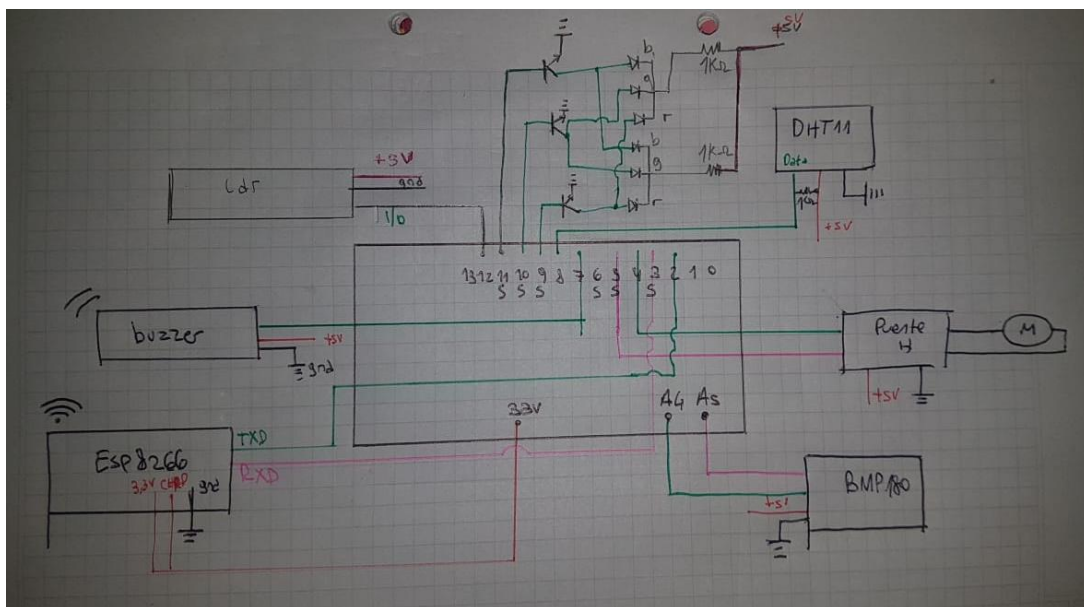 +5V
5V
b
g
r
1KΩ
b
g
r
1KΩ
DHT11
Data
1KΩ
+5V
Ldr
+5V
gnd
I/O
13 12 11 10 9 8 7 6 5 4 3 2 1 0
S S S S S S
buzzer
+5V
gnd
Puente
H
M
+5V
33V
A4 A5
Esp8266
TXD
RXD
3,3V CHPD gnd
BMP180
+5V